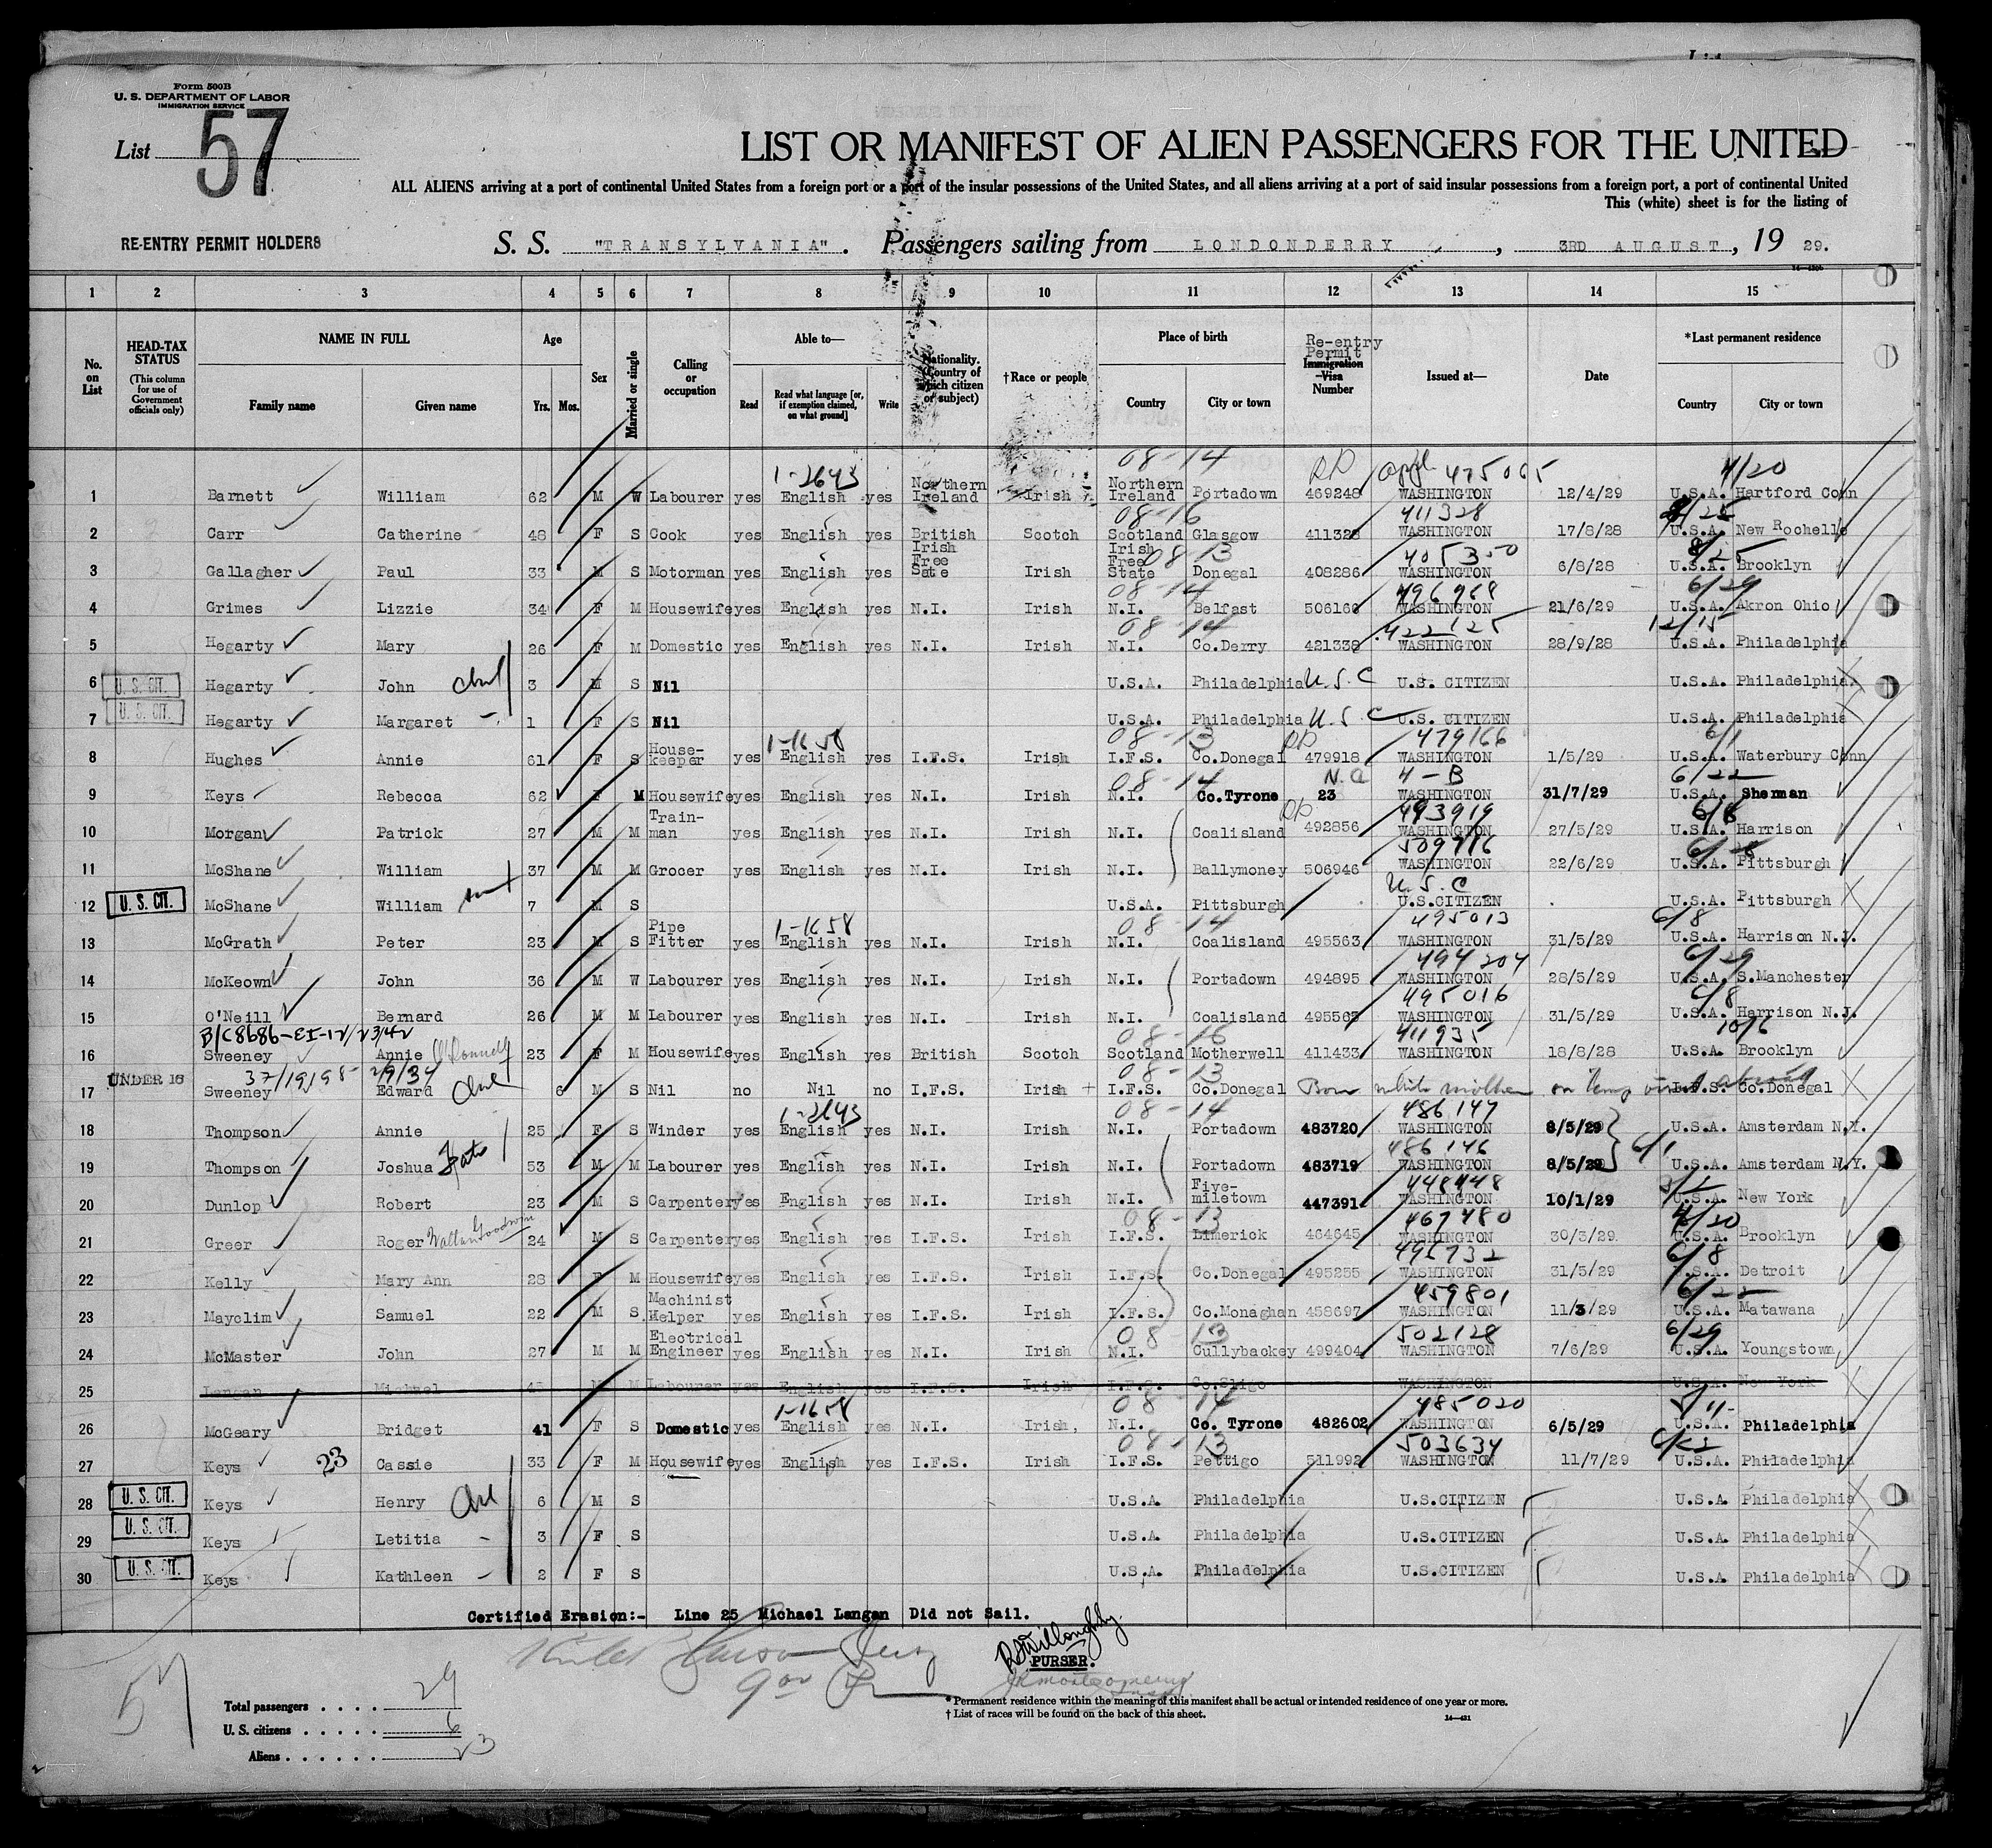 Form 500B
U. S. DEPARTMENT OF LABOR
IMMIGRATION SERVICE
List 57
LIST OR MANIFEST OF ALIEN PASSENGERS FOR THE UNITED
ALL ALIENS arriving at a port of continental United States from a foreign port or a port of the insular possessions of the United States, and all aliens arriving at a port of said insular possessions from a foreign port, a port of continental United
This (white) sheet is for the listing of
RE-ENTRY PERMIT HOLDERS
S. S. "TRANSYLVANIA". Passengers sailing from LONDONDERRY, 3RD AUGUST, 19 29.
1 2 3 4 5 6 7 8 9 10 11 12 13 14 15
No. on List
HEAD-TAX STATUS (This column for use of Government officials only)
NAME IN FULL Family name Given name
Age Yrs. Mos.
Sex
Married or single
Calling or occupation
Able to— Read Read what language [or, if exemption claimed, on what ground] Write
Nationality. (Country of which citizen or subject)
†Race or people
Place of birth Country City or town
Re-entry Permit Immigration Visa Number
Issued at—
Date
*Last permanent residence Country City or town
1-2643 08-14 475065 4/20
1 Barnett William 62 M W Labourer yes English yes Northern Ireland Irish Northern Ireland Portadown 469248 WASHINGTON 12/4/29 U.S.A. Hartford Conn
08-16 411328
2 Carr Catherine 48 F S Cook yes English yes British Scotch Scotland Glasgow 411328 WASHINGTON 17/8/28 U.S.A. New Rochelle
08 13 405350 8/25
3 Gallagher Paul 33 M S Motorman yes English yes Irish Free Sate Irish Irish Free State Donegal 408286 WASHINGTON 6/8/28 U.S.A. Brooklyn
08-14 496968 6/29
4 Grimes Lizzie 34 F M Housewife yes English yes N.I. Irish N.I. Belfast 506160 WASHINGTON 21/6/29 U.S.A. Akron Ohio
08-14 422125 12/15
5 Hegarty Mary 26 F M Domestic yes English yes N.I. Irish N.I. Co.Derry 421338 WASHINGTON 28/9/28 U.S.A. Philadelphia
6 U. S. CIT. Hegarty John 3 M S Nil U.S.A. Philadelphia U.S.C U.S. CITIZEN U.S.A. Philadelphia
7 U. S. CIT. Hegarty Margaret 1 F S Nil U.S.A. Philadelphia U.S.C U.S. CITIZEN U.S.A. Philadelphia
1-1658 08-13 479166 6/1
8 Hughes Annie 61 F S House-keeper yes English yes I.F.S. Irish I.F.S. Co.Donegal 479918 WASHINGTON 1/5/29 U.S.A. Waterbury Conn
08-14 4-B 6/22
9 Keys Rebecca 62 F M Housewife yes English yes N.I. Irish N.I. Co.Tyrone 23 WASHINGTON 31/7/29 U.S.A. Sherman
493919 6/8
10 Morgan Patrick 27 M M Train-man yes English yes N.I. Irish N.I. Coalisland 492856 WASHINGTON 27/5/29 U.S.A. Harrison
509716
11 McShane William 37 M M Grocer yes English yes N.I. Irish N.I. Ballymoney 506946 WASHINGTON 22/6/29 U.S.A. Pittsburgh
U.S.C
12 U. S. CIT. McShane William 7 M S U.S.A. Pittsburgh U.S.CITIZEN U.S.A. Pittsburgh
1-1658 08-14 495013 6/8
13 McGrath Peter 23 M S Pipe Fitter yes English yes N.I. Irish N.I. Coalisland 495563 WASHINGTON 31/5/29 U.S.A. Harrison N.J.
494204 6/29
14 McKeown John 36 M W Labourer yes English yes N.I. Irish N.I. Portadown 494895 WASHINGTON 28/5/29 U.S.A. S.Manchester
495016 6/8
15 O'Neill Bernard 26 M M Labourer yes English yes N.I. Irish N.I. Coalisland 495565 WASHINGTON 31/5/29 U.S.A. Harrison N.J.
08-16 411935 10/6
16 Sweeney Annie O'Donnell 23 F M Housewife yes English yes British Scotch Scotland Motherwell 411433 WASHINGTON 18/8/28 U.S.A. Brooklyn
08-13
17 UNDER 16 Sweeney Edward 6 M S Nil no Nil no I.F.S. Irish I.F.S. Co.Donegal Born while mother on temp visit abroad I.F.S. Co.Donegal
1-2643 08-14 486147
18 Thompson Annie 25 F S Winder yes English yes N.I. Irish N.I. Portadown 483720 WASHINGTON 8/5/29 U.S.A. Amsterdam N.Y.
486146 6/1
19 Thompson Joshua 53 M M Labourer yes English yes N.I. Irish N.I. Portadown 483719 WASHINGTON 8/5/29 U.S.A. Amsterdam N.Y.
448448
20 Dunlop Robert 23 M S Carpenter yes English yes N.I. Irish N.I. Five-miletown 447391 WASHINGTON 10/1/29 U.S.A. New York
08-13 467480 4/20
21 Greer Roger 24 M S Carpenter yes English yes I.F.S. Irish I.F.S. Limerick 464645 WASHINGTON 30/3/29 U.S.A. Brooklyn
6/8
22 Kelly Mary Ann 28 F M Housewife yes English yes I.F.S. Irish I.F.S. Co.Donegal 495255 WASHINGTON 31/5/29 U.S.A. Detroit
459801
23 Mayclim Samuel 22 M S Machinist Helper yes English yes I.F.S. Irish I.F.S. Co.Monaghan 458697 WASHINGTON 11/3/29 U.S.A. Matawana
08 13 502128 6/29
24 McMaster John 27 M M Electrical Engineer yes English yes N.I. Irish N.I. Cullybackey 499404 WASHINGTON 7/6/29 U.S.A. Youngstown
25 Langan Michael M M Labourer yes English yes I.F.S. Irish I.F.S. Co.Sligo WASHINGTON U.S.A. New York
1-1658 08-14 485020
26 McGeary Bridget 41 F S Domestic yes English yes N.I. Irish, N.I. Co. Tyrone 482602 WASHINGTON 6/5/29 U.S.A. Philadelphia
08-13 503634
27 Keys 23 Cassie 33 F M Housewife yes English yes I.F.S. Irish I.F.S. Pettigo 511992 WASHINGTON 11/7/29 U.S.A. Philadelphia
28 U. S. CIT. Keys Henry 6 M S U.S.A. Philadelphia U.S.CITIZEN U.S.A. Philadelphia
29 U. S. CIT. Keys Letitia 3 F S U.S.A. Philadelphia U.S.CITIZEN U.S.A. Philadelphia
30 U. S. CIT. Keys Kathleen 2 F S U.S.A. Philadelphia U.S.CITIZEN U.S.A. Philadelphia
Certified Erasion:- Line 25 Michael Langan Did not Sail.
PURSER.
57
Total passengers .... 29
U. S. citizens ..... 6
Aliens ...... 23
* Permanent residence within the meaning of this manifest shall be actual or intended residence of one year or more.
† List of races will be found on the back of this sheet.